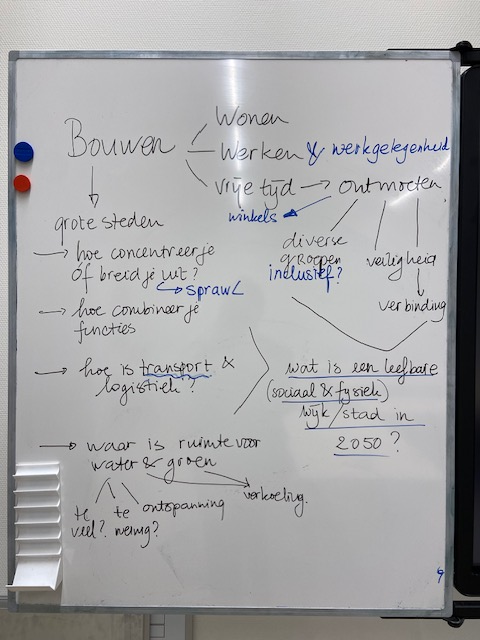 Wonen
Bouwen
Werken & werkgelegenheid
vrije tijd → ontmoeten
winkels
grote steden
diverse
groepen
inclusief?
veiligheid
verbinding
→ hoe concentreer je
óf breid je uit?
→ sprawl
→ hoe combineer je
functies
→ hoe is transport &
logistiek?
wat is een leefbare
(sociaal & fysiek)
wijk/stad in
2050?
→ waar is ruimte voor
water & groen
te
veel?
te
weinig?
ontspanning
verkoeling.